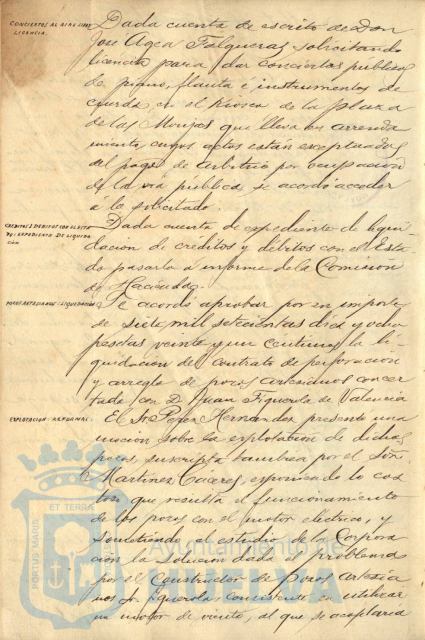 CONCIERTOS AL AIRE LIBRE
LICENCIA.
Dada cuenta de escrito de Don
José Aqca Falqueras solicitando
licencia para dar conciertos públicos
de piano, flauta e instrumentos de
cuerda en el Kiosco de la plaza
de las Monjas que lleva en arrenda
miento, cuyos actos están exceptuados
del pago de arbitrio por ocupación
de la vía pública, se acordó acceder
á lo solicitado.
CREDITOS I DEBITOS CON EL ESTA
DO: EXPEDIENTE DE LIQUIDA
CION
Dada cuenta de expediente de liqui
dacion de creditos y débitos con el Esta
do pasarlo á informe de la Comision
de Hacienda.
POZOS ARTESIANOS: LIQUIDACION
Se acordó aprobar por su importe
de siete mil setecientas diez y ocho
pesetas veinte y un centimos la li
quidacion del contrato de perforacion
y arreglo de pozos artesianos concer
tado con D. Juan Figuerola de Valencia
EXPLOTACION: REFORMA.
El Sr. Pérez Hernandez presentó una
mocion sobre la explotacion de dichos
pozos, suscripta tambien por el Señor
Martinez Caceres, exponiendo lo cos
toso que resulta el funcionamiento
de los pozos con el motor electrico, y
sometiendo al estudio de la Corpora
cion la solucion dada al problema
por el Constructor de Pozos Artesia
nos Sr. Figuerola, consistente en utilizar
un motor de viento, al que se acoplaria
PORTUS MARIS
ET TERRAE
Ayuntamiento de
HUELVA